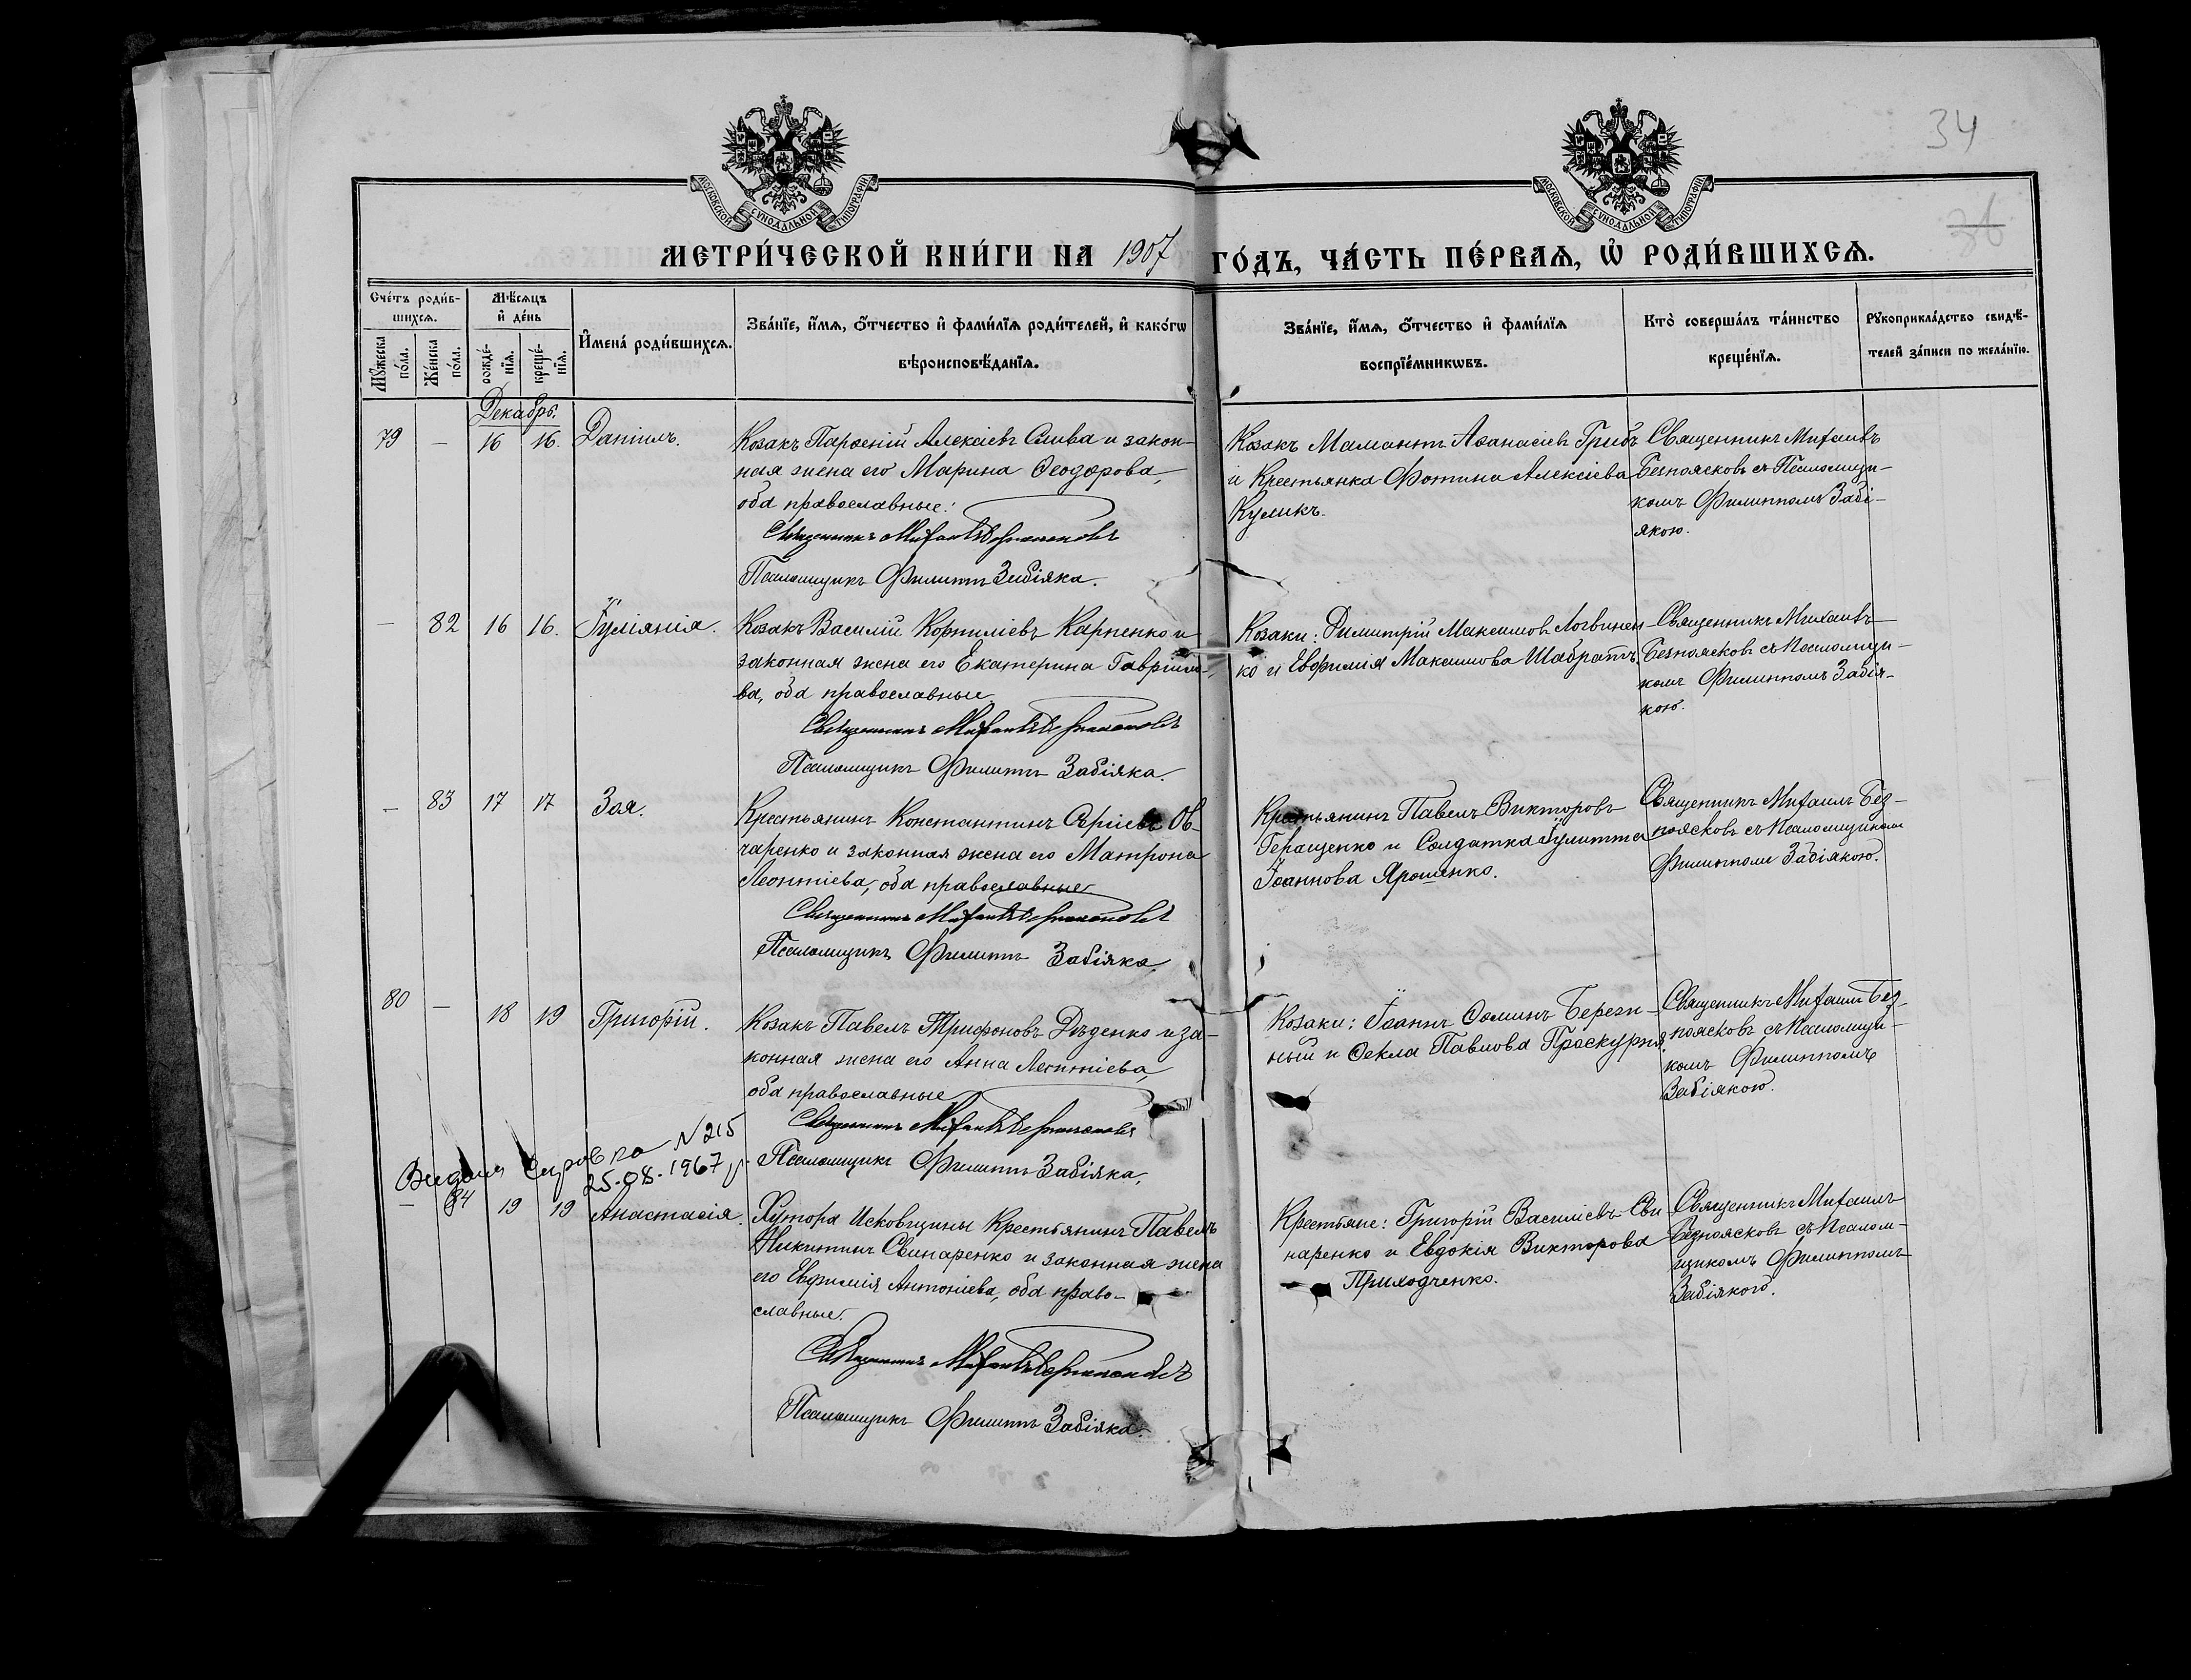 34
36
МОСКОВСКОЙ СѴНОДАЛЬНОЙ ТИПОГРАФІИ
МОСКОВСКОЙ СѴНОДАЛЬНОЙ ТИПОГРАФІИ
МЕТРИ́ЧЕСКОЙ КНИ́ГИ НА 1907 ГО́ДЪ, ЧА́СТЬ ПЕ́РВАѦ, Ѡ РОДИ́ВШИХСѦ.
Сче́тъ роди́в-
шихсѧ.
Мꙋжеска по́ла.
Же́нска по́ла.
Мѣ́сѧцъ
и҆ де́нь
рожде́-
нїѧ.
креще́-
нїѧ.
И҆мена̀ роди́вшихсѧ.
Зва́нїе, и҆́мѧ, ѻ҆́тчество и҆ фами́лїѧ роди́телей, и҆ како́гѡ
вѣроисповѣ́данїѧ.
Зва́нїе, и҆́мѧ, ѻ҆́тчество и҆ фами́лїѧ
воспрїе́мникѡвъ.
Кто̀ соверша́лъ та́инство
креще́нїѧ.
Рꙋкоприкла́дство свидѣ́-
телей за́писи по жела́нїю.
Декабрь.
79 — 16 16. Даніилъ.
Козакъ Парѳеній Алексіевъ Слива и закон-
ная жена его Марина Ѳеодорова,
оба православные.
Священникъ Михаилъ Безпоясковъ
Псаломщикъ Филиппъ Забіяка.
Козакъ Мамантъ Аѳанасіевъ Грибъ
и Крестьянка Фотина Алексіева
Куликъ.
Священникъ Михаилъ
Безпоясковъ съ Псаломщи-
комъ Филиппомъ Забі-
якою.
— 82 16 16. Іуліанія.
Козакъ Василій Корниліевъ Карпенко и
законная жена его Екатерина Гаврііло-
ва, оба православные
Священникъ Михаилъ Безпоясковъ
Псаломщикъ Филиппъ Забіяка.
Козаки: Димитрій Максимовъ Логвинен-
ко и Евфимія Максимова Шабратъ,
Священникъ Михаилъ
Безпоясковъ съ Псаломщи-
комъ Филиппомъ Забія-
кою.
— 83 17 17 Зоя.
Крестьянинъ Константинъ Сергіевъ Ов-
чаренко и законная жена его Матрона
Леонтіева, оба православные
Священникъ Михаилъ Безпоясковъ
Псаломщикъ Филиппъ Забіяка.
Крестьянинъ Павелъ Викторовъ
Геращенко и Солдатка Іулитта
Іоаннова Ярошенко.
Священникъ Михаилъ Без-
поясковъ съ Псаломщикомъ
Филиппомъ Забіякою.
80 — 18 19 Григорій.
Козакъ Павелъ Трифоновъ Дѣденко и за-
конная жена его Анна Леонтіева,
оба православные
Священникъ Михаилъ Безпоясковъ
Псаломщикъ Филиппъ Забіяка,
Козаки: Іоаннъ Ѳоминъ Берегн-
ный и Ѳекла Павлова Проскурня.
Священникъ Михаилъ Без-
поясковъ съ Псаломщи-
комъ Филиппомъ
Забіякою.
Видана справка N 215
25.08.1967 р.
— 84 19 19 Анастасія.
Хутора Исковщины Крестьянинъ Павелъ
Никитинъ Свинаренко и законная жена
его Евфимія Антоніева, оба право-
славные.
Священникъ Михаилъ Безпоясковъ
Псаломщикъ Филиппъ Забіяка.
Крестьяне: Григорій Василіевъ Сви-
наренко и Евдокія Викторова
Приходченко.
Священникъ Михаилъ
Безпоясковъ съ Псалом-
щикомъ Филиппомъ
Забіякою.